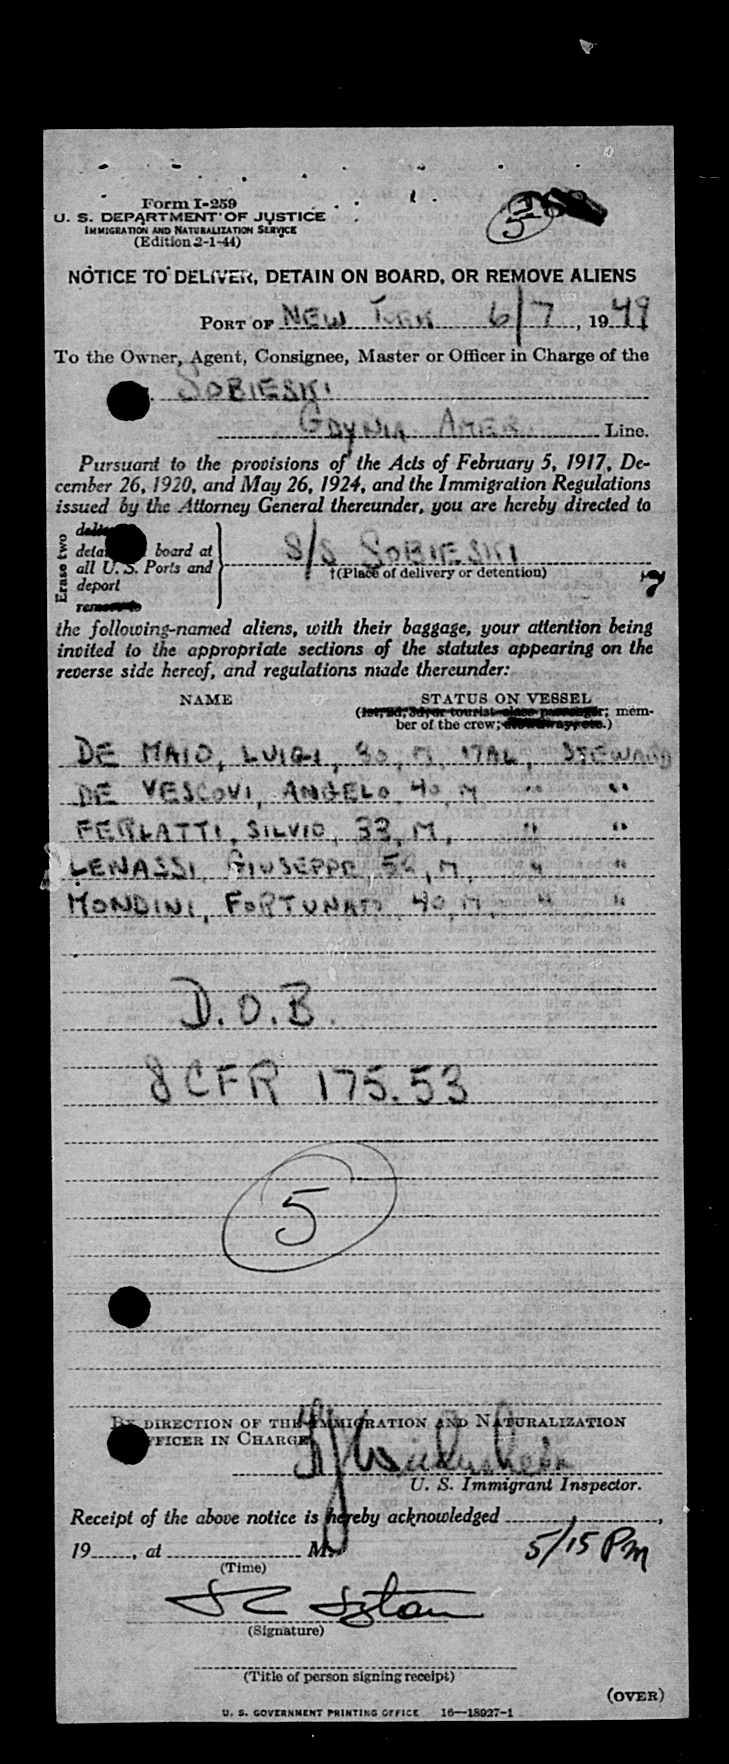 Form I-259
U. S. DEPARTMENT OF JUSTICE
IMMIGRATION AND NATURALIZATION SERVICE
(Edition 2-1-44)
5
NOTICE TO DELIVER, DETAIN ON BOARD, OR REMOVE ALIENS
PORT OF NEW YORK 6/7, 1949
To the Owner, Agent, Consignee, Master or Officer in Charge of the
SOBIESKI
GDYNIA AMER. Line.
Pursuant to the provisions of the Acts of February 5, 1917, De-
cember 26, 1920, and May 26, 1924, and the Immigration Regulations
issued by the Attorney General thereunder, you are hereby directed to
Erase two
board at
all U. S. Ports and
deport
remove to
S/S SOBIESKI
†(Place of delivery or detention)
7
the following-named aliens, with their baggage, your attention being
invited to the appropriate sections of the statutes appearing on the
reverse side hereof, and regulations made thereunder:
NAME STATUS ON VESSEL
(1st, 2d, 3d, or tourist class passenger; mem-
ber of the crew;
DE MAIO, LUIGI, 30, M, ITAL, STEWARD
DE VESCOVI, ANGELO, 40, M " "
FERLATTI, SILVIO, 33, M, " "
LENASSI, GIUSEPPE, M, " "
MONDINI, FORTUNATO, 40, M, " "
D.O.B.
8 CFR 175.53
5
BY DIRECTION OF THE IMMIGRATION AND NATURALIZATION
OFFICER IN CHARGE
U. S. Immigrant Inspector.
Receipt of the above notice is hereby acknowledged ,
19 , at M.
5/15 PM
(Time)
(Signature)
(Title of person signing receipt)
(OVER)
U. S. GOVERNMENT PRINTING OFFICE 16—18927-1